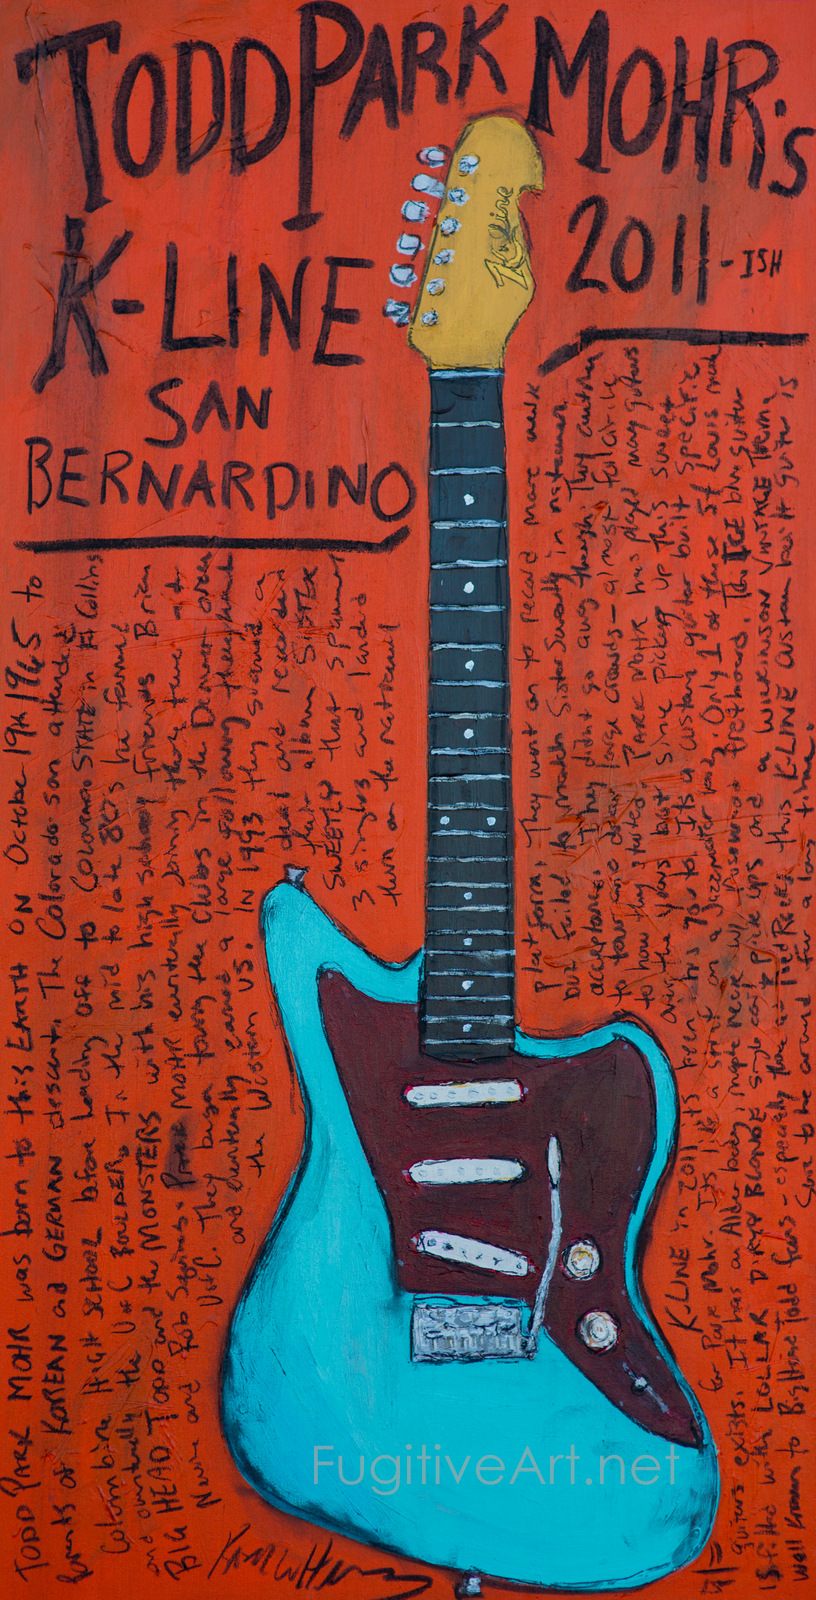 TODD PARK MOHR'S
2011-ISH
K-LINE
SAN
BERNARDINO
K-Line
TODD PARK MOHR was born to this EARTH ON October 19th 1965 to
Parents of KOREAN and GERMAN descent. The Colorado son attended
Columbine HIGH SCHOOL before heading off to COLORADO STATE in Ft Collins
and eventually the U of C BOULDER. In the mid to late 80's he formed
BIG HEAD TODD and the MONSTERS with his high school friends Brian
Nevin and Rob Squires. PARK MOHR eventually joining them there at
U of C. They began touring the clubs in the Denver area
and eventually earned a large following throughout
the Western US. In 1993 they signed a
deal and recorded
their album SISTER
SWEETLY that spawned
3 singles and landed
them on the national
platform. They went on to record more work
but failed to match Sister Sweetly in national
acceptance. They didn't go away though. They continue
to tour and draw large crowds - almost
to how they started. PARK MOHR has played many guitars
over the years but since picking up this sweet
K-LINE in 2011 its been his go to. Its a custom guitar built specific
for Park Mohr. Its like a spirit on a Jazzmaster and Only 1 of these St Louis made
guitars exists. It has an Alder body, maple neck w/ Rosewood fretboard. The ICE blue guitar
is fitted with LOLLAR DIRTY BLONDE single coil pickups and a WILKINSON VINTAGE Trem.
Well known to Big Head Todd fans - especially those at Red Rocks this K-LINE custom built guitar is
sure to be around for a long time.
FugitiveArt.net